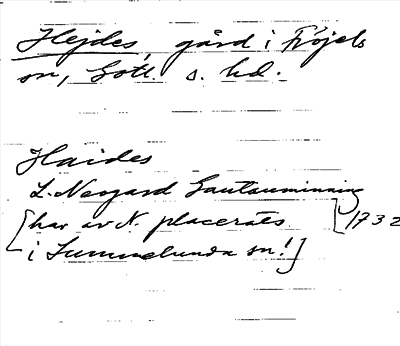 Hejdes, gård i Fröjels
sn, Gotl. s. hd.
Haides
L. Neogard Gautauminning
[har av N. placerats [1732
i Lummelunda sn!]